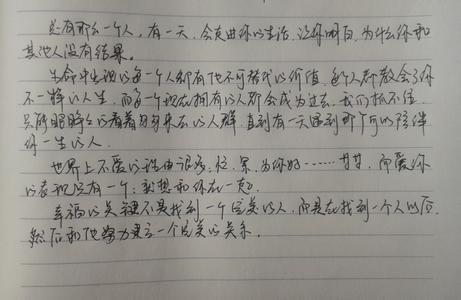 总有那么一个人，有一天，会走进你的生活，让你明白，为什么你和
其他人没有结果。
生命中出现的每一个人都有他不可替代的价值，每个人都教会了你
不一样的人生，而每一个现在拥有的人都会成为过去，我们抓不住，
只能眼睁睁的看着来来往的人群，直到有一天遇到那个可以陪伴
你一生的人。
世界上不爱的理由很多：忙、累、为你好……等等，而爱你
的表现只有一个：就想和你在一起。
幸福的关键不是找到一个完美的人，而是在找到一个人以后，
然后和他努力建立一个完美的关系。